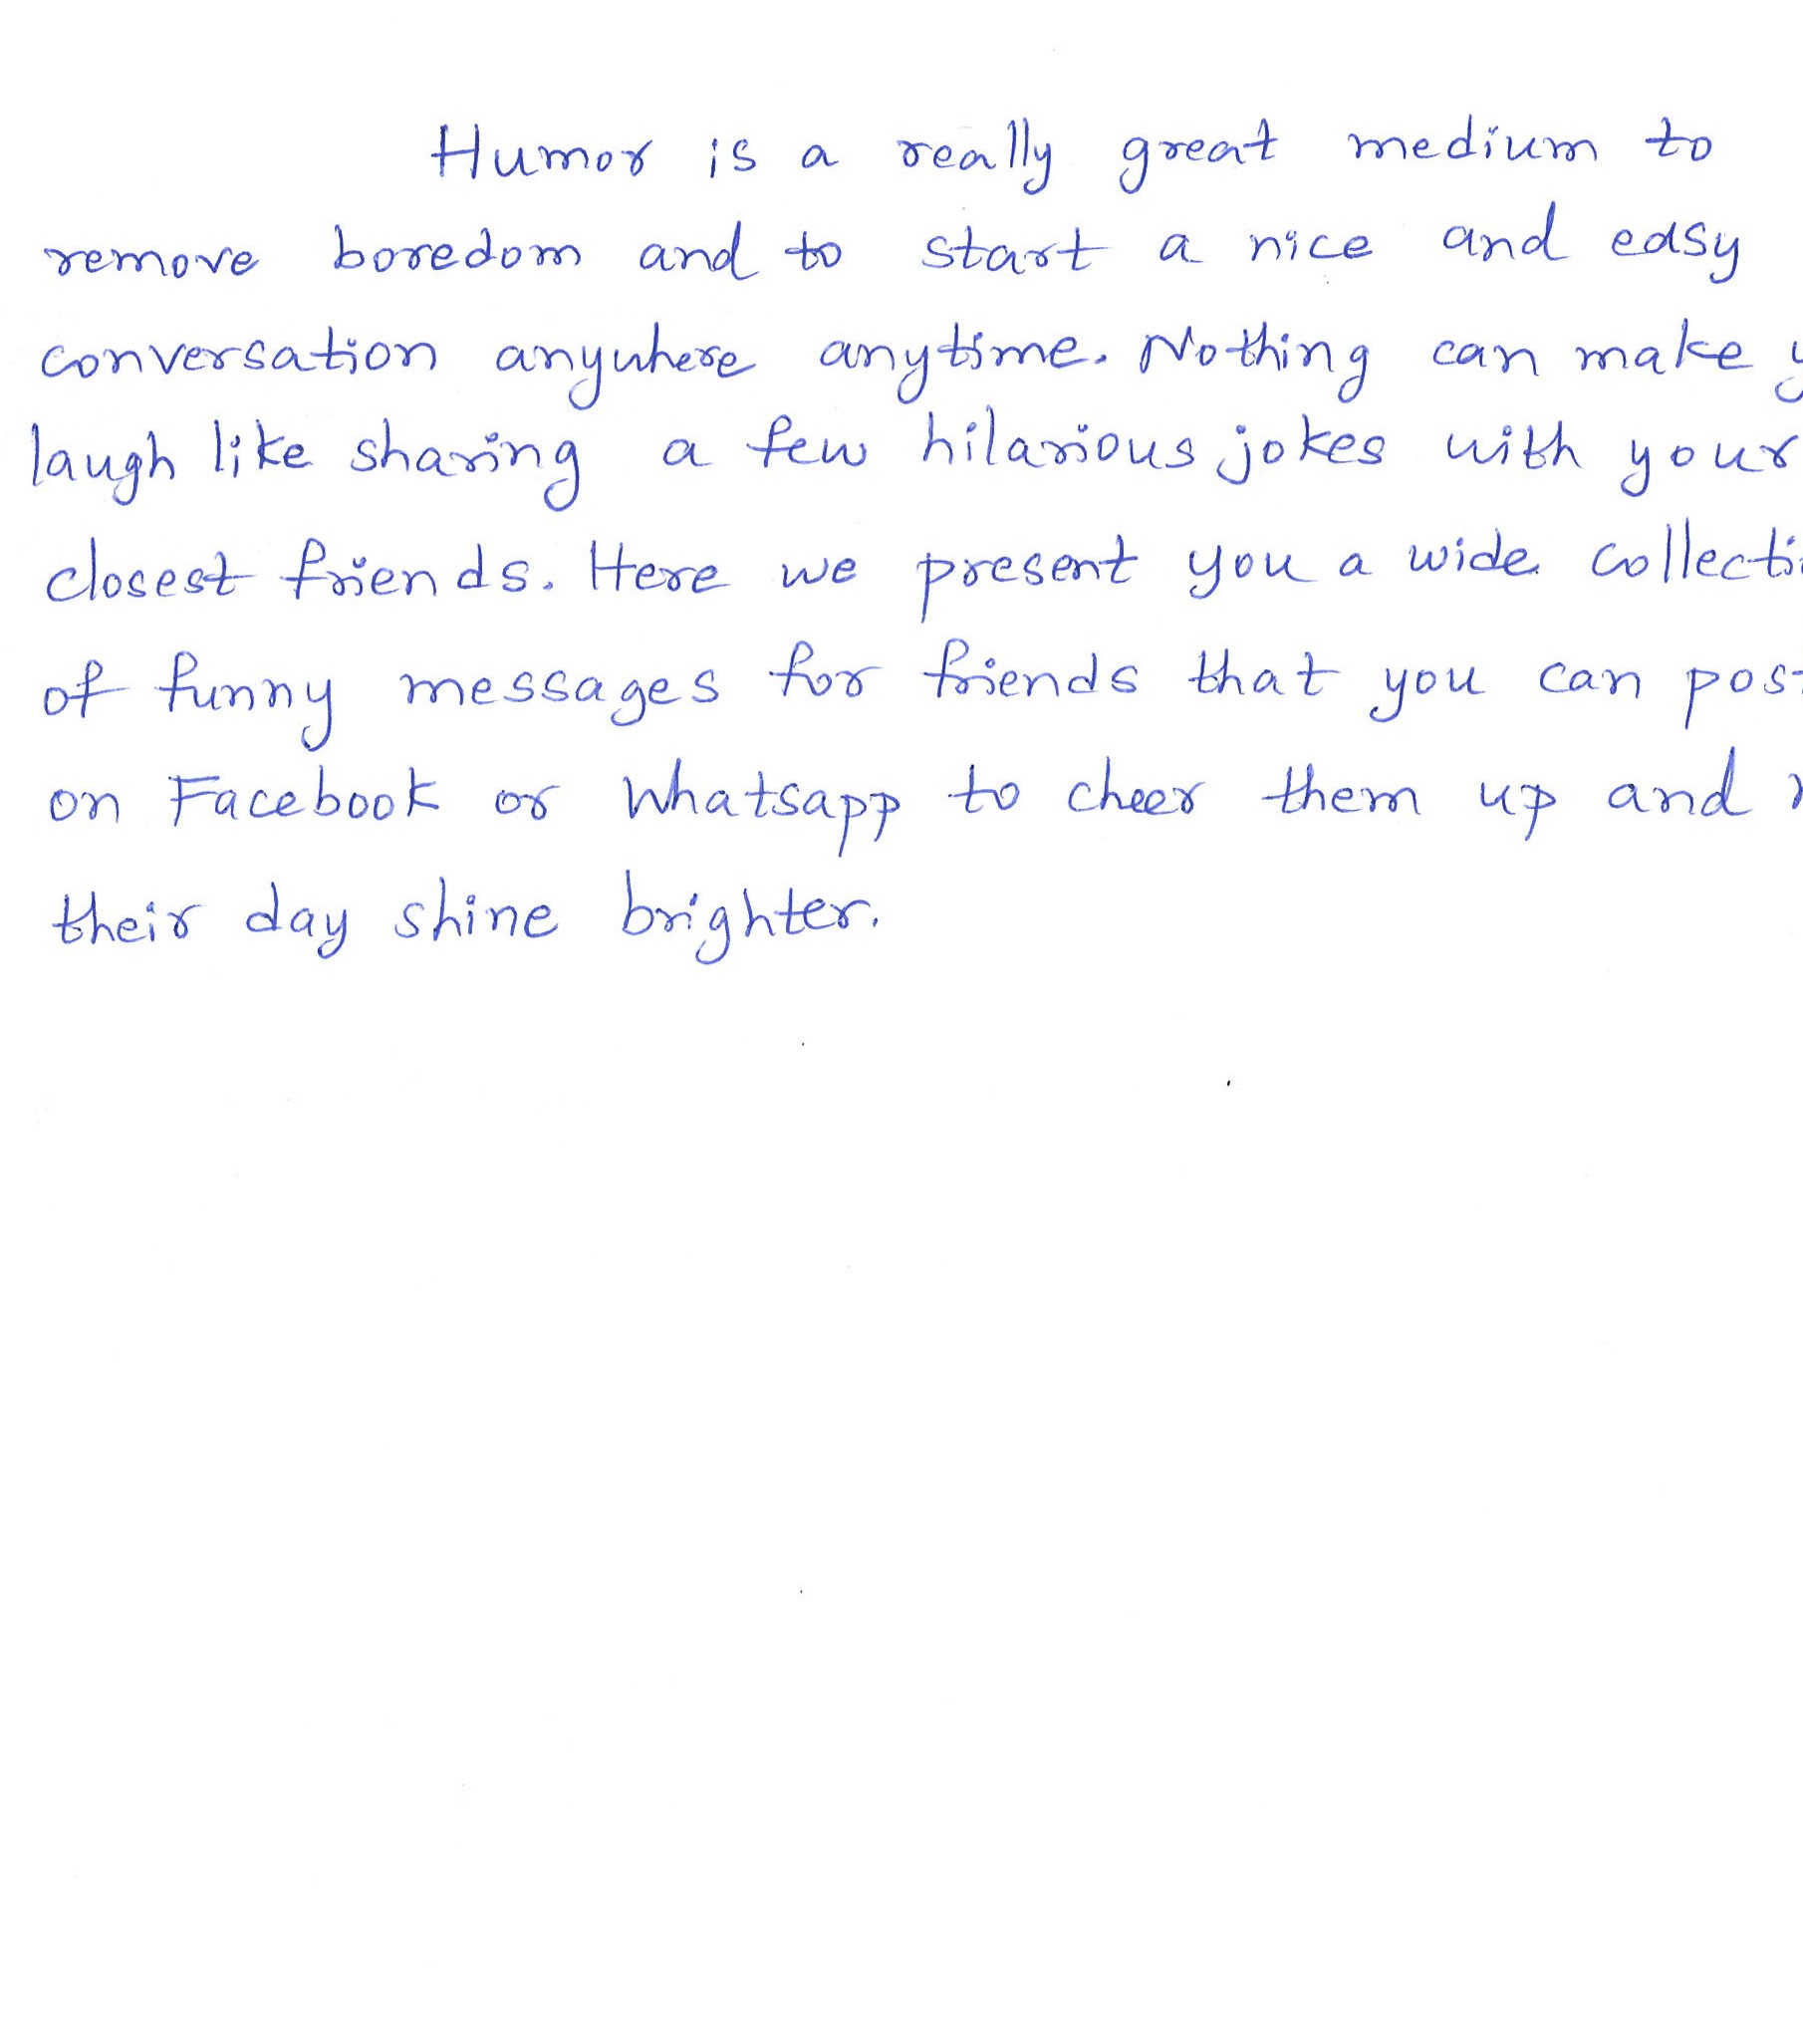 Humor is a really great medium to
remove boredom and to start a nice and easy
conversation anywhere anytime. Nothing can make
laugh like sharing a few hilarious jokes with your
closest friends. Here we present you a wide collecti
of funny messages for friends that you can post
on Facebook or Whatsapp to cheer them up and
their day shine brighter.